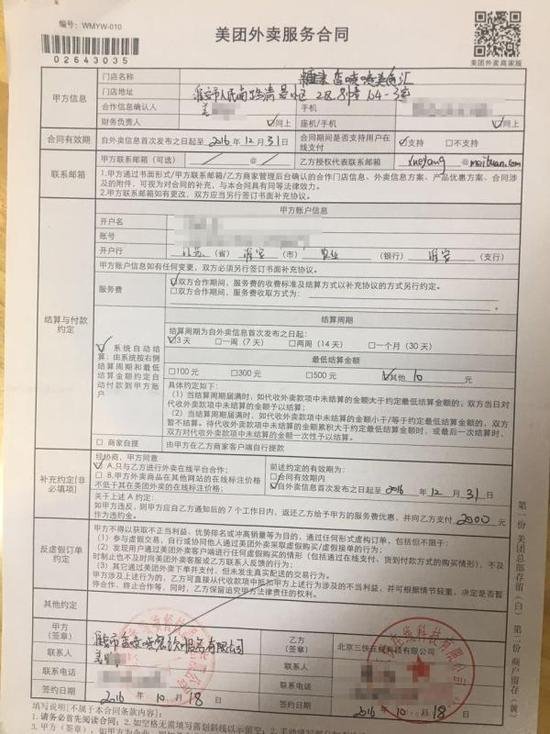 编号: WMYW-010
美团外卖服务合同
02643035
美团外卖商家版
甲方信息
门店名称
门店地址
合作信息确认人
手机
财务负责人 ☑同上
座机/手机 ☑同上
合同有效期
自外卖信息首次发布之日起至 2016 年 12 月 31 日
合同期间是否支持用户在线支付
☑支持 □不支持
联系邮箱
甲方联系邮箱(可选) / @ /
乙方授权代表联系邮箱 @ meituan.com
1.甲方通过书面形式/甲方联系邮箱/乙方商家管理后台确认的合作门店信息、外卖信息方案、产品优惠方案、合同涉及的附件,可视为对合同的补充,与本合同具有同等法律效力。
2.甲方联系邮箱如有更改,双方应当另行签订书面补充协议。
结算与付款约定
甲方账户信息
开户名
账号
开户行 江苏 (省) 淮安 (市) 农业 (银行) 淮安 (支行)
甲方账户信息如有任何变更,双方必须另行签订书面补充协议。
服务费
☑双方合作期间,服务费的收费标准及结算方式以补充协议的方式另行约定。
□双方合作期间,服务费收取方式为:
☑系统自动结算:由系统按右侧结算周期和最低结算金额约定自动付款到甲方账户
结算周期
结算周期为自外卖信息首次发布之日起:
☑3天 □一周(7天) □两周(14天) □一个月(30天)
最低结算金额
□100元 □300元 □500元 ☑其他 10 元
具体约定如下:
(1)当结算周期届满时,如代收外卖款项中未结算的金额大于约定最低结算金额的,双方当日对代收外卖款项中未结算的金额予以结算;
(2)当结算周期届满时,如代收外卖款项中未结算的金额小于/等于约定最低结算金额的,双方暂不结算。待代收外卖款项中未结算的金额累积大于约定最低结算金额时,或最后一次结算时,双方对代收外卖款项中未结算的金额一次性予以结算。
□商家自提
由甲方在乙方商家客户端自行提款
补充约定(非必填项)
经协商,甲方同意
☑A.只与乙方进行外卖在线平台合作;
□B.外卖商品在其他网站的在线标注价格不低于其在美团外卖的在线标注价格。
前述约定的有效期:
□合同有效期内
☑自外卖信息首次发布之日起至 2016 年 12 月 31 日
关于上述A约定:
如甲方违反,则甲方应自乙方通知后的7个工作日内,返还乙方给予甲方的服务费优惠,并向乙方支付 2000 元作为违约金。
反虚假订单约定
甲方不得以获取不正当利益、优势排名或冲高销量等为目的,通过任何形式虚构订单,包括但不限于:
(1)参与虚假交易,自行或协同他人通过美团外卖采取虚假购买/虚假接单的行为;
(3)其它通过美团外卖下单并支付,但未发生真实配送的交易行为。
其他约定
甲方
(签章)
乙方
(签章)
北京三快在线科技有限公司
联系人
联系人
联系电话
联系电话
签约日期 2016 年 10 月 18 日
签约日期 2016 年 10 月 18 日
填写说明(不属于本合同条款内容)
第一份 美团总部存留(白) 第二份 商户留存(黄)